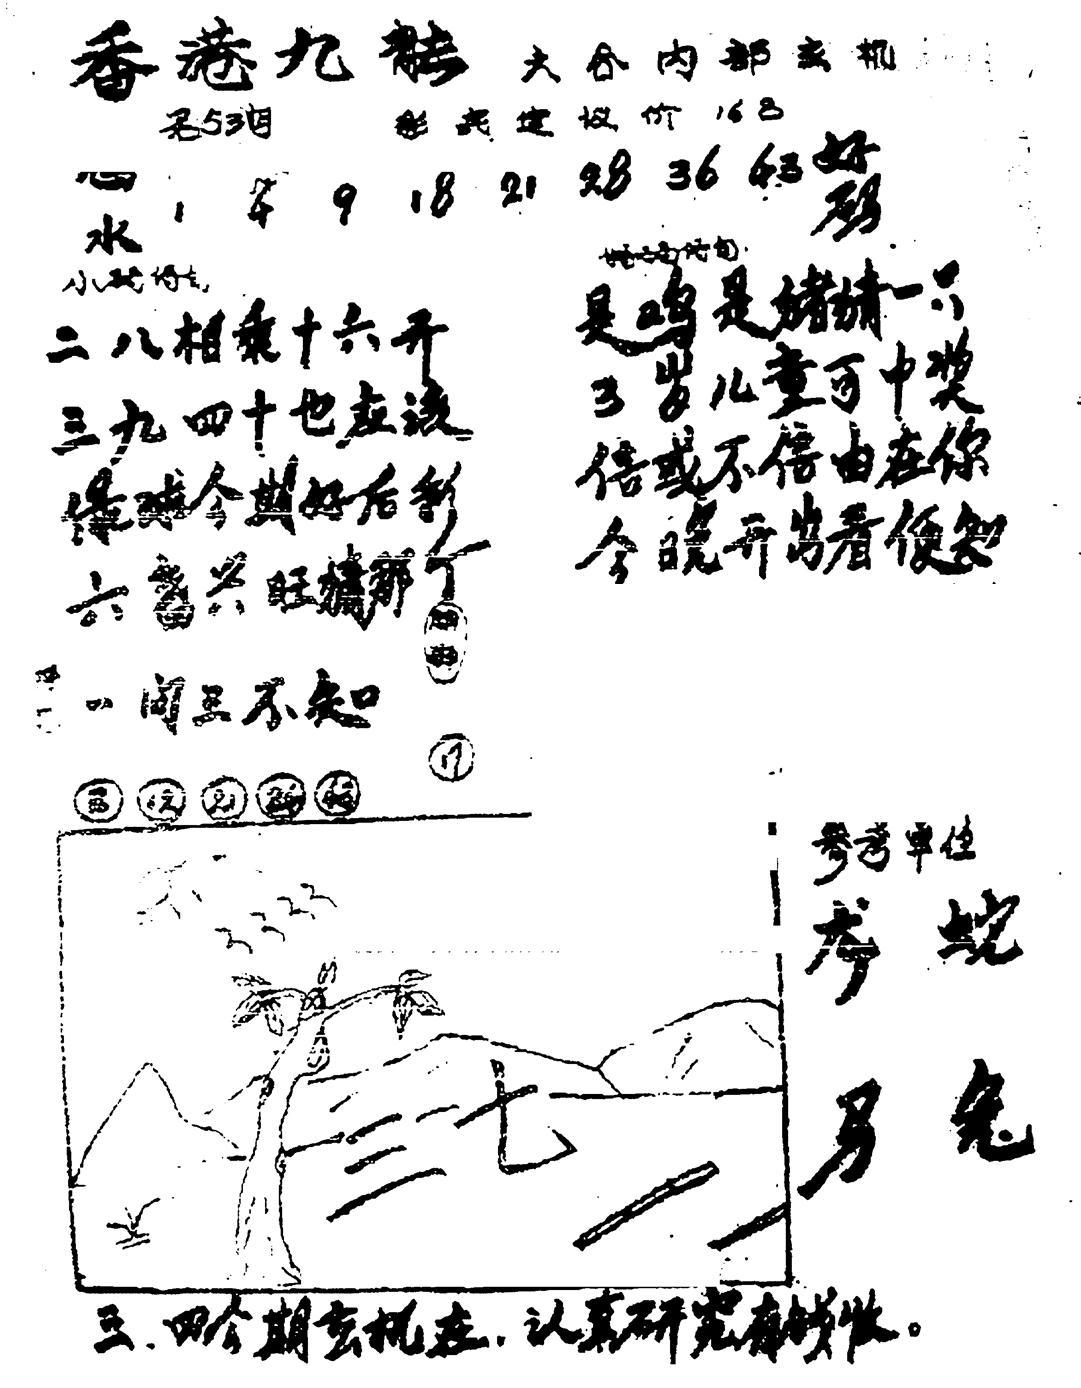 香港九龍 大谷内部玄机
第53期 彩民建议价 168
1 4 9 18 21 28 36 43 好
水 码
二八相乘十六开
三九四十也应该
今期好后彩
六畜兴旺猜那丁
一问三不知
17
是鸡是猪猜一只
3岁儿童可中奖
信或不信由在你
今晚开出看便知
参考单位
蛇
马 兔
三七
三.四今期玄机在.认真研究有钱收。